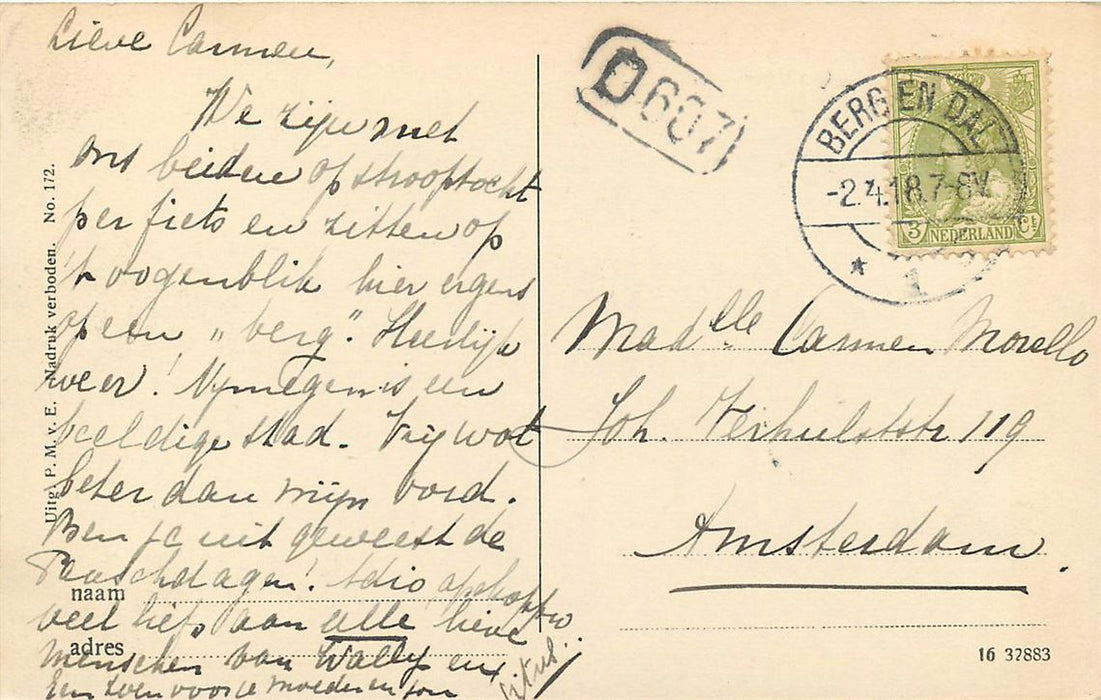 Lieve Carmen,
We zijn met
ons beiden op strooptocht
per fiets en zitten op
't oogenblik hier ergens
op een „berg". Heerlijk
weer! Nymegen is een
beeldige stad. Vrij wat
beter dan mijn oord.
Ben je uit geweest de
Paaschdagen! Adio,
veel liefs aan alle lieve
menschen van Wally en
Een zoen voor je moeder en
Uitg. P. M. v. E. Nadruk verboden. No. 172.
naam
adres
D 607
BERG EN DAL
-2.4.18.7-8V.
1
3 NEDERLAND Ct
Madelle Carmen Morello
Joh. Verhulststr 119
Amsterdam.
16 32883